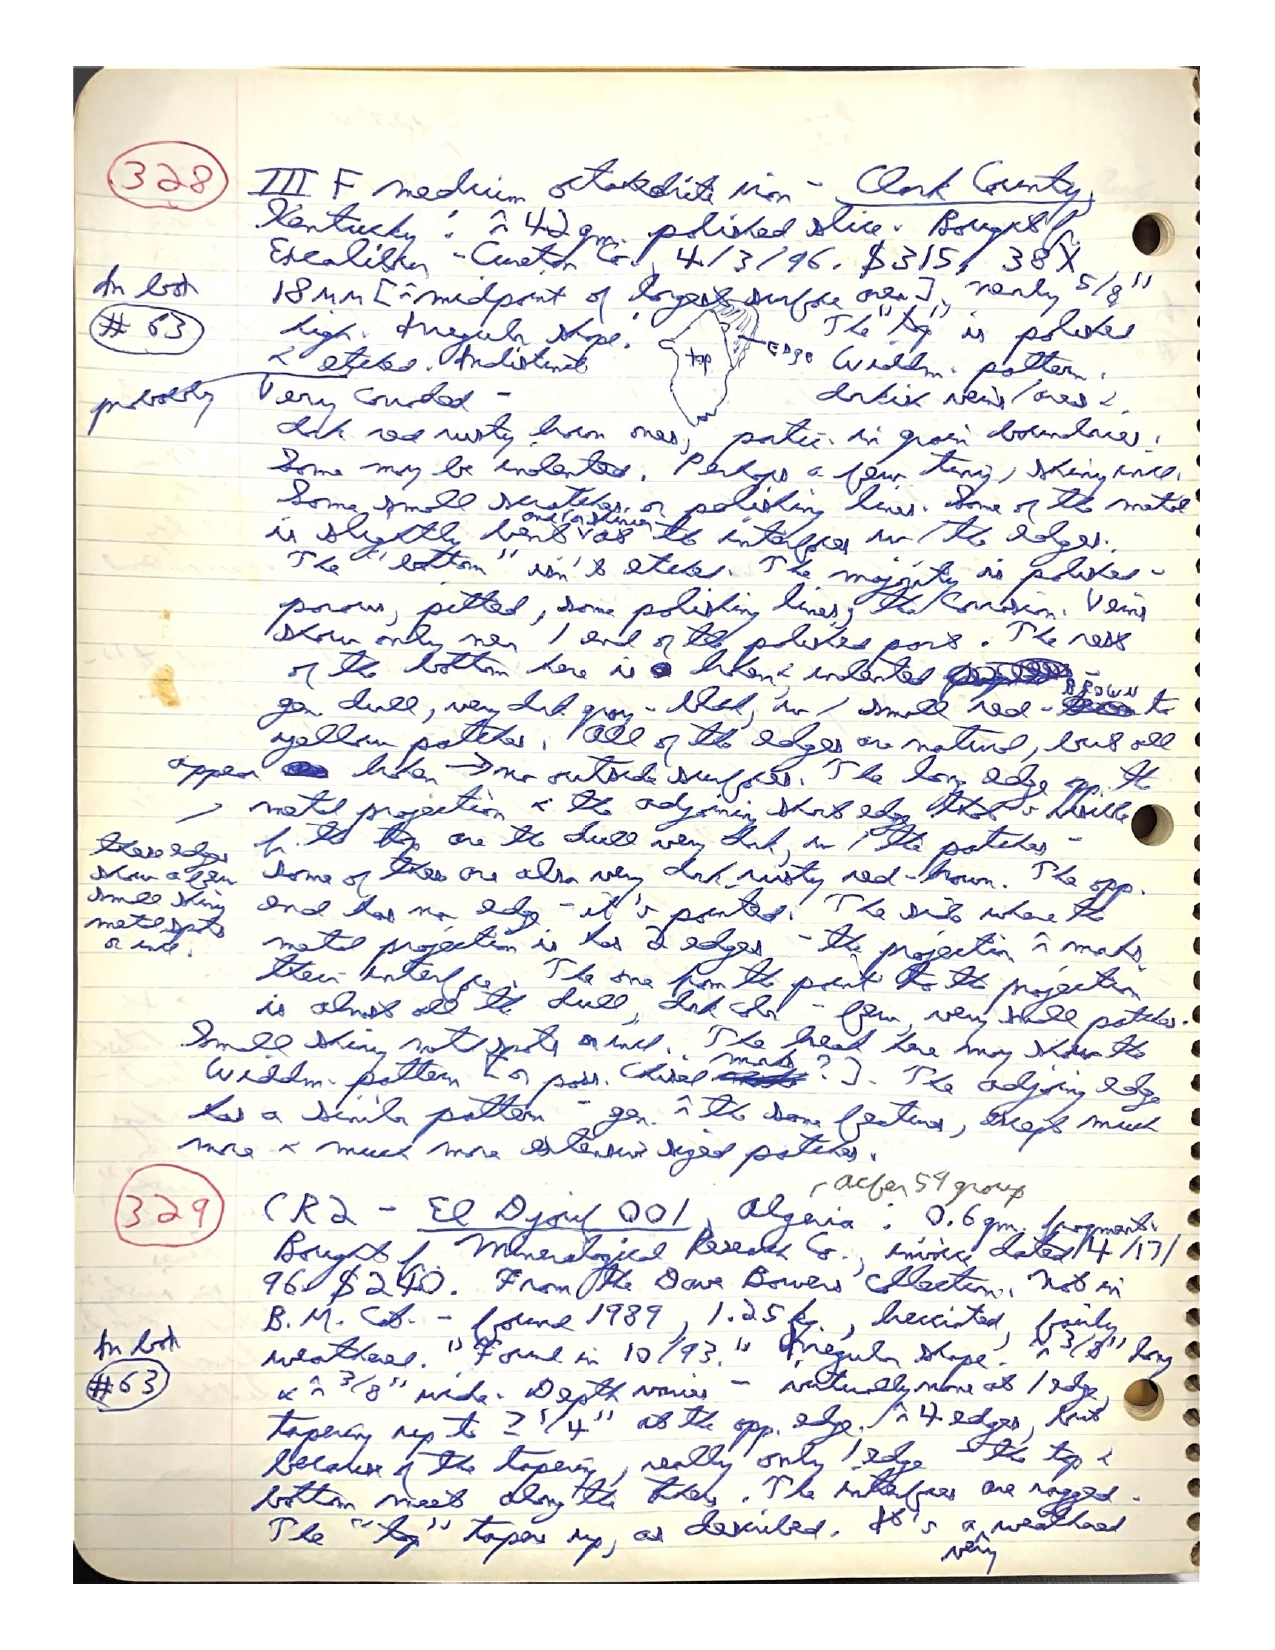 328
III F medium octahedrite iron - Clark County,
Kentucky: ^ 42 gm. polished slice. Bought f.
Excalibur - Cureton Co., 4/3/96. $315. 38 X
In box
18 mm [^ midpoint of longest surface area], nearly 5/8"
# 63
high. Irregular shape: The "top" is polished
top
EDGE
& etched. Indistinct Widdm. pattern.
probably
Very corroded - darkish veins/areas &
dark red rusty brown ones, partic. in grain boundaries.
Some may be indented. Perhaps a few tiny, shiny incl.
Some small scratches or polishing lines. Some of the metal
is slightly bent and/or shinier as the interfaces w/ the edges.
The "bottom" isn't etched. The majority is polished -
porous, pitted, some polishing lines, the corrosion. Veins
show only near 1 end of the polished part. The rest
of the bottom here is broken & indented
gen. dull, very dark gray - black, w/ small red - BROWN to
yellow patches. All of the edges are natural, but all
appear broken → no outside surfaces. The long edge opp. the
metal projection & the adjoining short edge that's visible
f. the top are the dull very dark, w/ the patches -
these edges
show a few
small shiny
metal spots
or incl.
some of these are also very dark, rusty red-brown. The opp.
end has no edge - it's pointed. The side where the
metal projection is has 2 edges - the projection ^ marks
their interface. The one from the point to the projection
is almost all the dull, dark color - few, very small patches.
Small shiny metal spots or incl. The break here may show the
Widdm. pattern [or poss. chisel marks?]. The adjoining edge
has a similar pattern - gen. ^ the same features, except much
more & much more extensive sized patches.
329
- Acfer 59 group
CR2 - El Djouf 001, Algeria: 0.6 gm. fragment.
Bought f. Mineralogical Research Co., invoice dated 4/17/
96. $240. From the Dave Bowers collection. Not in
B.M. Cat. - found 1989, 1.25 kg., brecciated, fairly
In box
# 63
weathered. "Found in 10/93." Irregular shape. ^ 3/8" long
& ^ 3/8" wide. Depth varies - virtually none at 1 edge,
tapering up to ≥ 1/4" at the opp. edge. ^ 4 edges, but
because of the tapering, really only 1 edge - the top &
bottom meet along the others. The interfaces are ragged.
The "top" tapers up, as described. It's a very weathered